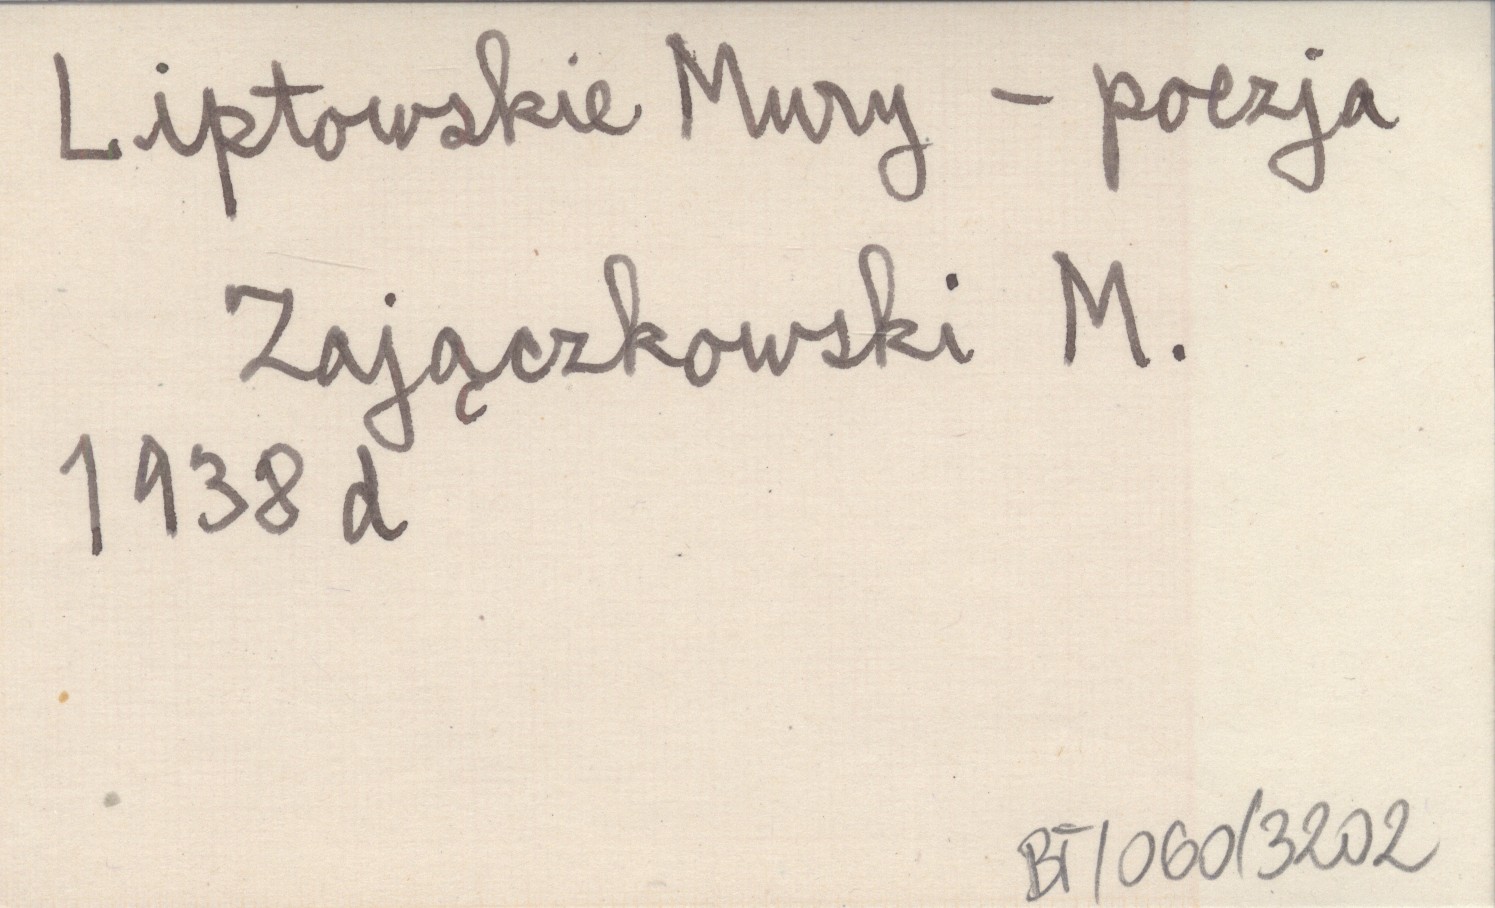 Liptowskie Mury - poezja
Zajączkowski M.
1938 d
BT/060/3202